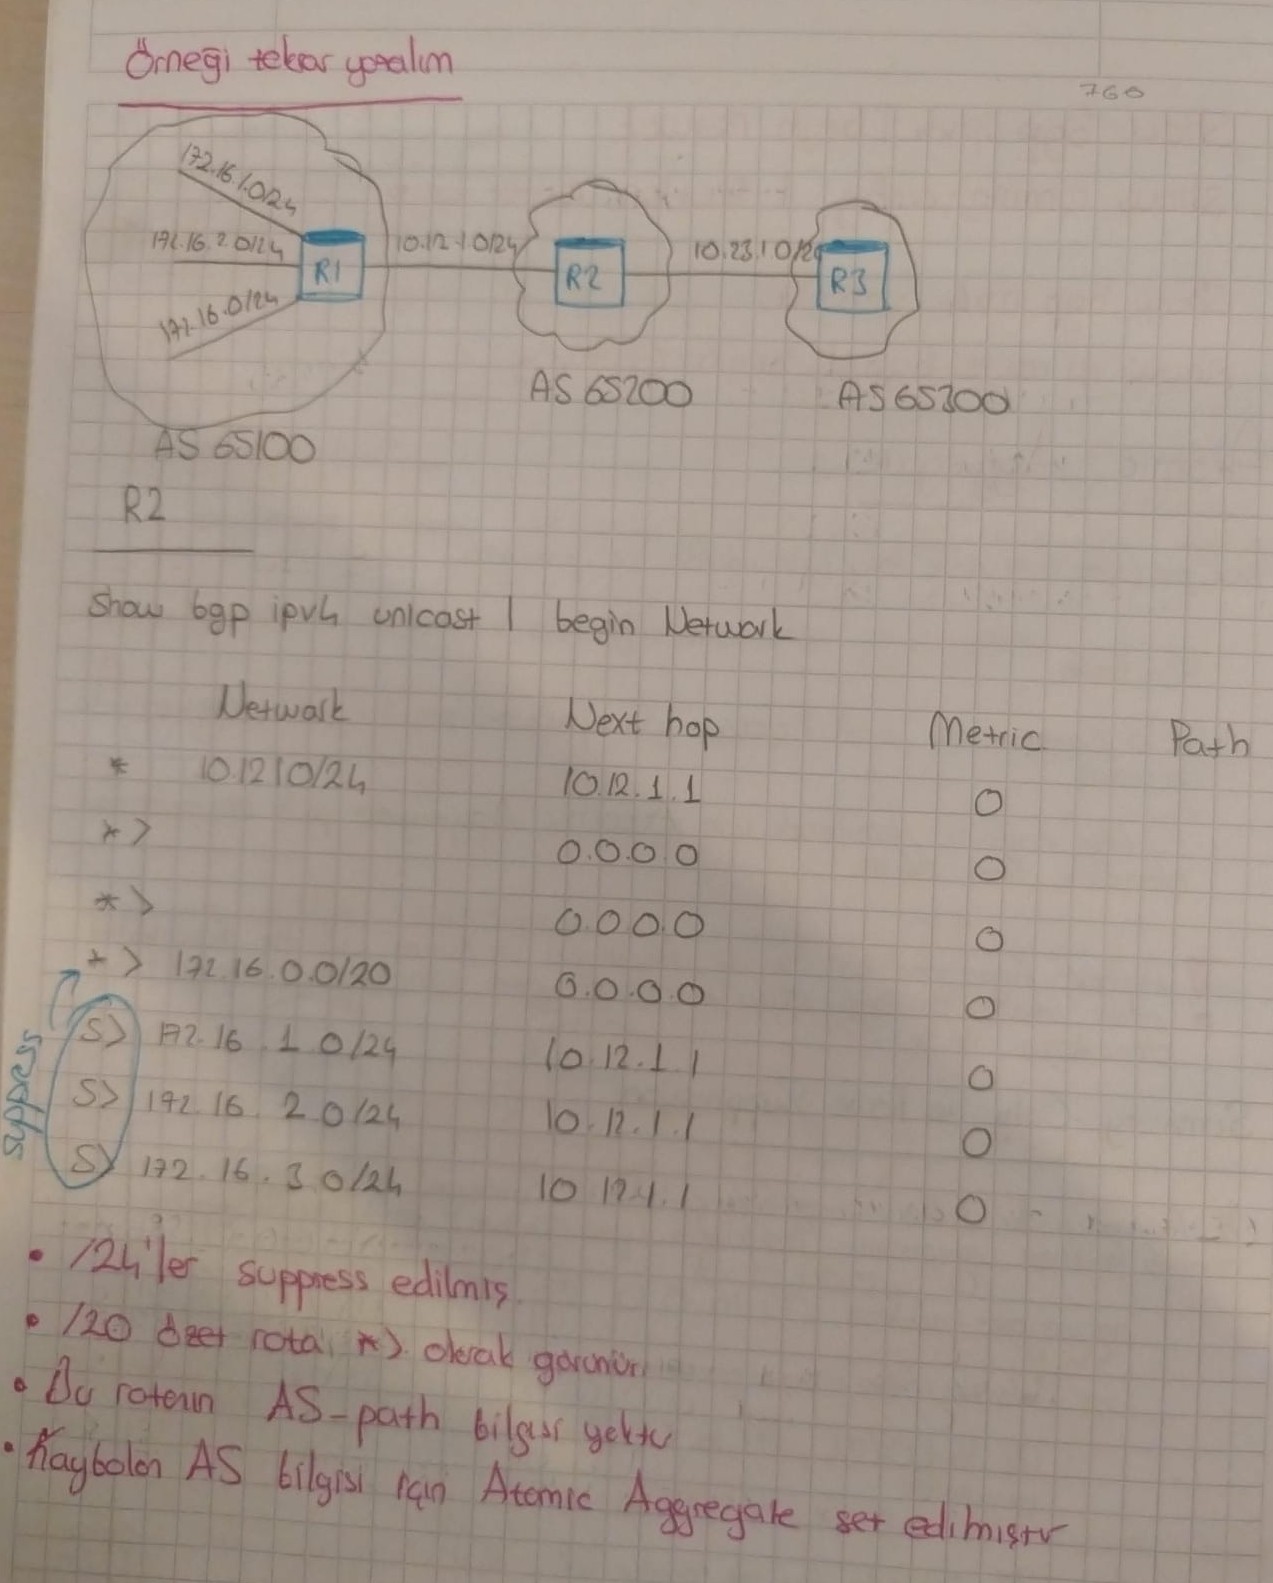 Örneği tekrar yazalım
760
172.16.1.0/24
172.16.2.0/24
172.16.0/24
R1
10.12.1.0/24
R2
10.23.1.0/24
R3
AS 65200
AS 65300
AS 65100
R2
Show bgp ipv4 unicast | begin Network
Network Next hop Metric Path
* 10.12.1.0/24 10.12.1.1 0
*> 0.0.0.0 0
*> 0.0.0.0 0
*> 172.16.0.0/20 0.0.0.0 0
S> 172.16.1.0/24 10.12.1.1 0
S> 172.16.2.0/24 10.12.1.1 0
S> 172.16.3.0/24 10.12.1.1 0
suppress
• /24'ler suppress edilmiş.
• /20 özet rota, *> olarak görünür.
• Bu rotanın AS-path bilgisi yoktur
• Kaybolan AS bilgisi için Atomic Aggregate set edilmiştir